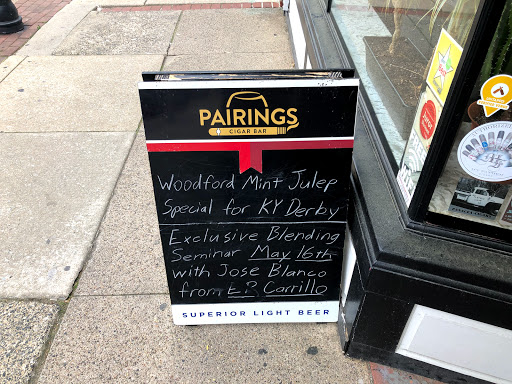 PAIRINGS
CIGAR BAR
Woodford Mint Julep
Special for KY Derby
Exclusive Blending
Seminar May 16th
with Jose Blanco
from E.P. Carrillo
SUPERIOR LIGHT BEER